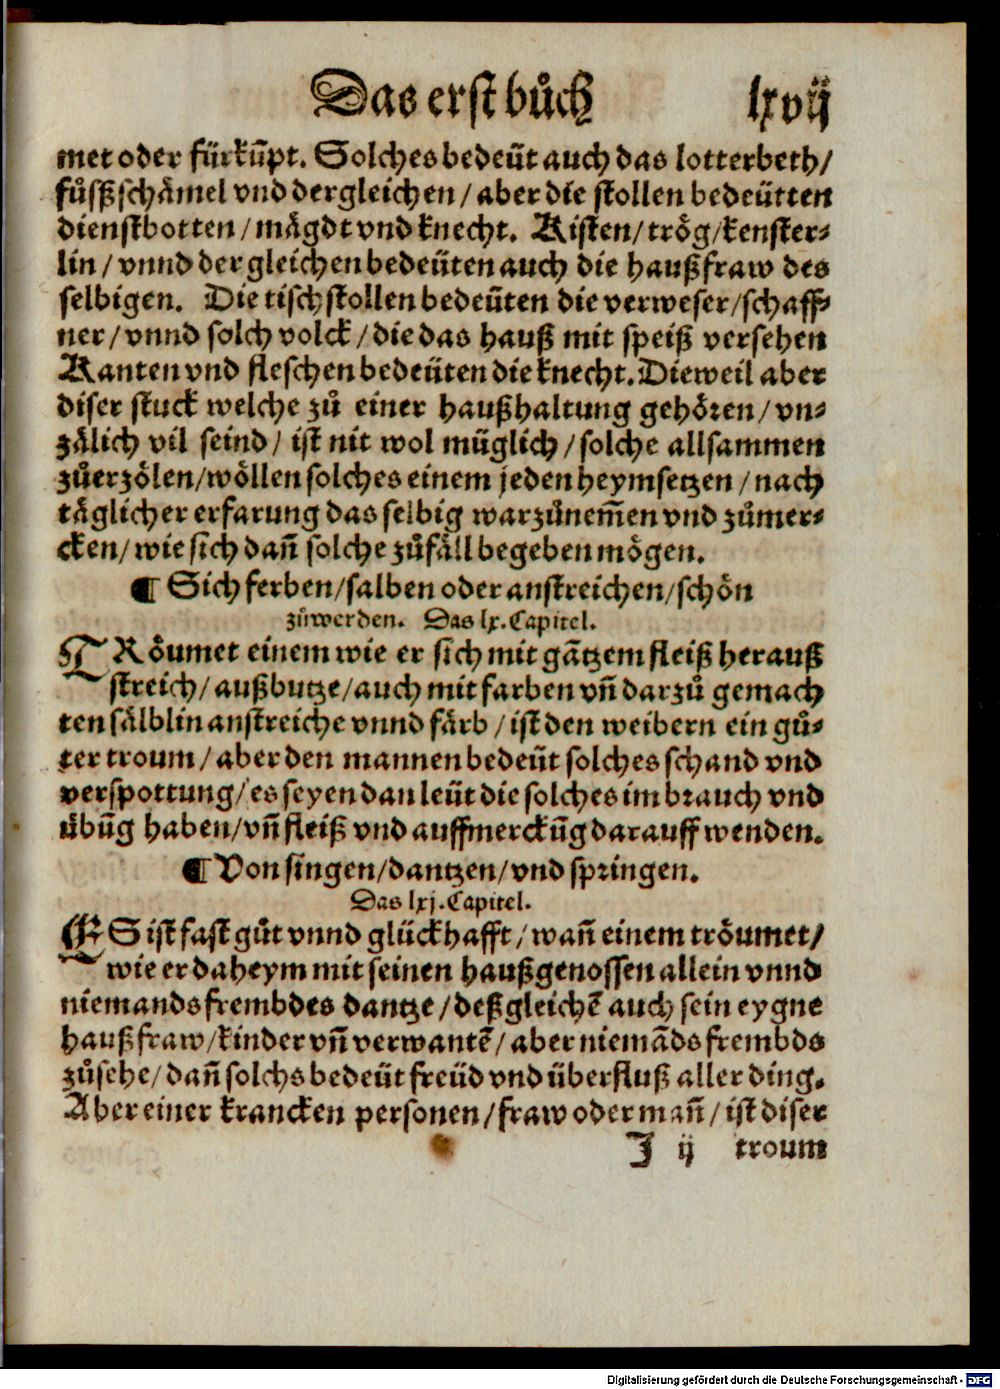 Das erst buͦch lxvij
met oder fürkūpt. Solches bedeüt auch das lotterbeth/
fuͦßschämel vnd dergleichen/ aber die stollen bedeütten
dienstbotten/ mägdt vnd knecht. Kisten/ trög/ kenster-
lin/ vnnd der gleichen bedeüten auch die haußfraw des
selbigen. Die tischstollen bedeüten die verweser/ schaff-
ner/ vnnd solch volck/ die das hauß mit speiß versehen
Kanten vnd fleschen bedeüten die knecht. Dieweil aber
diser stuck welche zuͦ einer haußhaltung gehören/ vn-
zälich vil seind/ ist nit wol müglich/ solche allsammen
zuͦerzölen/ wöllen solches einem jeden heymsetzen/ nach
täglicher erfarung das selbig warzuͦnem̄en vnd zuͦmer-
cken/ wie sich dañ solche zuͦfäll begeben mögen.
¶ Sich ferben/ salben oder anstreichen/ schön
zuͦwerden. Das lx. Capitel.
TRöumet einem wie er sich mit gãtzem fleiß herauß
streich/ außbutze/ auch mit farben vñ darzuͦ gemach
ten sälblin anstreiche vnnd färb/ ist den weibern ein guͦ-
ter troum/ aber den mannen bedeüt solches schand vnd
verspottung/ es seyen dan leüt die solches im brauch vnd
übūg haben/ vñ fleiß vnd auffmerckūg darauff wenden.
¶ Von singen/ dantzen/ vnd springen.
Das lxj. Capitel.
ES ist fast guͦt vnnd glückhafft/ wañ einem tröumet/
wie er daheym mit seinen haußgenossen allein vnnd
niemands frembdes dantze/ deßgleichẽ auch sein eygne
haußfraw/ kinder vñ verwantẽ/ aber niemãds frembds
zuͦsehe/ dañ solchs bedeüt freüd vnd überfluß aller ding.
Aber einer krancken personen/ fraw oder mañ/ ist diser
J ij troum
Digitalisierung gefördert durch die Deutsche Forschungsgemeinschaft - DFG